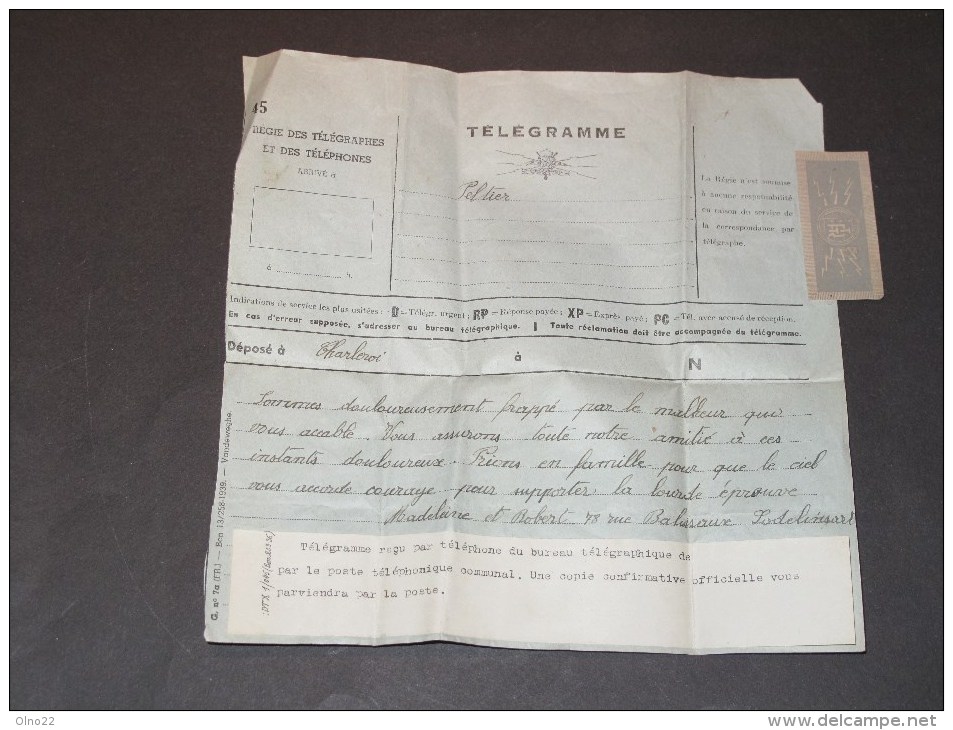 45
RÉGIE DES TÉLÉGRAPHES
ET DES TÉLÉPHONES
ARRIVÉ à
à ........ h.
TÉLÉGRAMME
Peltier
La Régie n'est soumise
à aucune responsabilité
en raison du service de
la correspondance par
télégraphe.
Indications de service les plus usitées : D = Télégr. urgent ; RP = Réponse payée ; XP = Exprès payé ; PC = Tél. avec accusé de réception.
En cas d'erreur supposée, s'adresser au bureau télégraphique. | Toute réclamation doit être accompagnée du télégramme.
Déposé à Charleroi à N
Sommes douloureusement frappé par le malheur qui
vous accable. Vous assurons toute notre amitié à ces
instants douloureux. Prions en famille pour que le ciel
vous accorde courage pour supporter la lourde épreuve
Madeleine et Robert 78 rue Balisseaux Lodelinsart
Télégramme reçu par téléphone du bureau télégraphique de
par le poste téléphonique communal. Une copie confirmative officielle vous
parviendra par la poste.
G. n° 7a (FR.) — Bon 13/258-1939. — Vandeweghe.
Olno22
www.delcampe.net